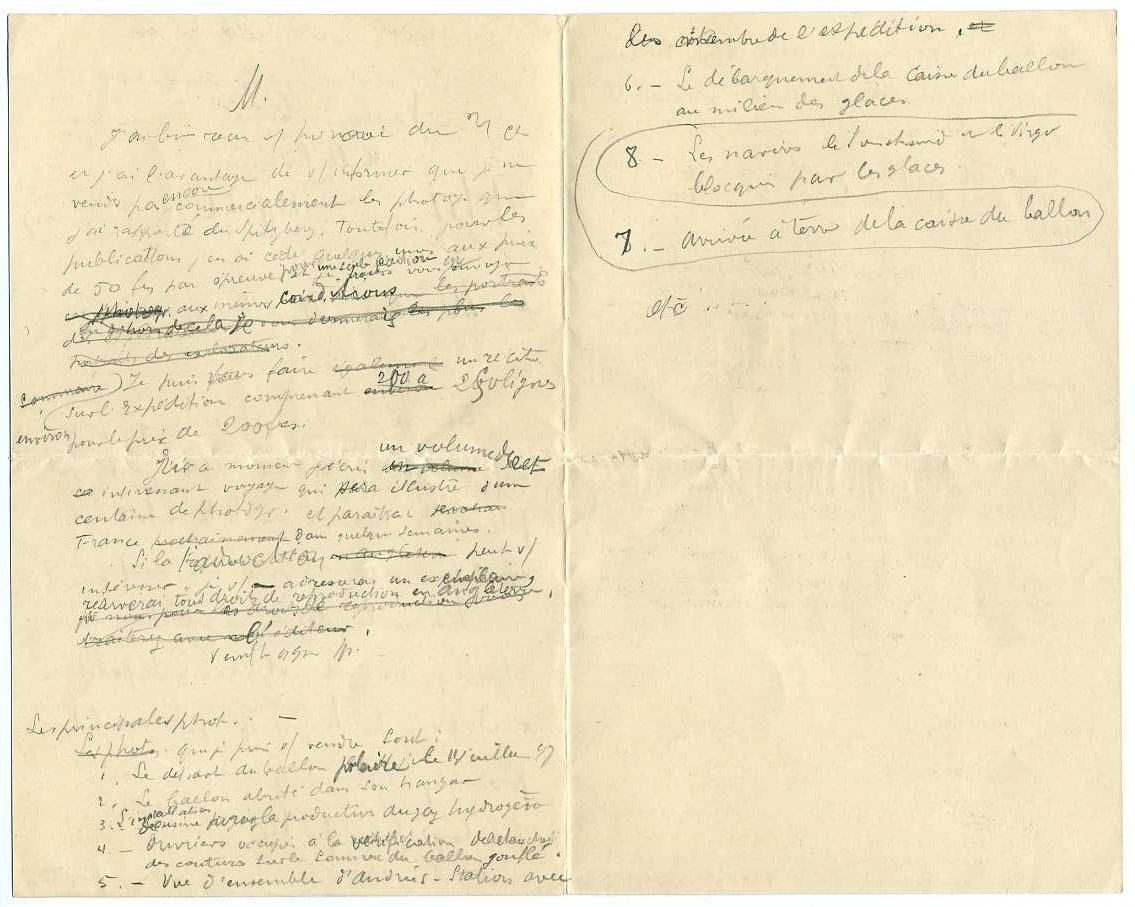 M.
J'ai bien reçu v/ du et
j'ai l'avantage de v/ informer que je ne
vends pas encore commercialement les photogr. que
j'ai rapporté du Spitzberg. Toutefois pour les
publications j'en ai cédé quelques unes aux prix
de 50 frs par épreuve
aux mêmes conditions les portraits
en dehors de cela je vous donnerais les plus
portraits des explorateurs.
Je puis vous faire également un récit
sur l'Expédition comprenant environ 200 a 250 lignes
environ pour le prix de 200 frs.
moment j'écris un volume de cet
intéressant voyage qui sera illustré d'une
centaine de photogr. et paraîtra
France prochainement dans quelques semaines.
Si la en Angleterre peut v/
intéresser, je v/ adresserai un exemplaire
tout droit de reproduction en Angleterre,
les droits de reproduction
traiterez avec l'éditeur.
Veuillez agréer M.
Les principales phot. . —
Les photos. que je puis v/ vendre sont :
1. Le départ du ballon polaire le 11 juillet 97
2. Le ballon abrité dans son hangar
3. - L'installation de usine pour la production du gaz hydrogène
4 - Ouvriers occupés à la vérification de l'étanchéité
des coutures sur le sommet du ballon gonflé.
5. - Vue d'ensemble d'Andrée - Station avec
les membre de l'expédition.
6. - Le débarquement de la caisse du ballon
au milieu des glaces.
8 - Les navires le Svensksund et le Virgo
blocqués par les glaces
7. - Arrivée à terre de la caisse du ballon
etc .....